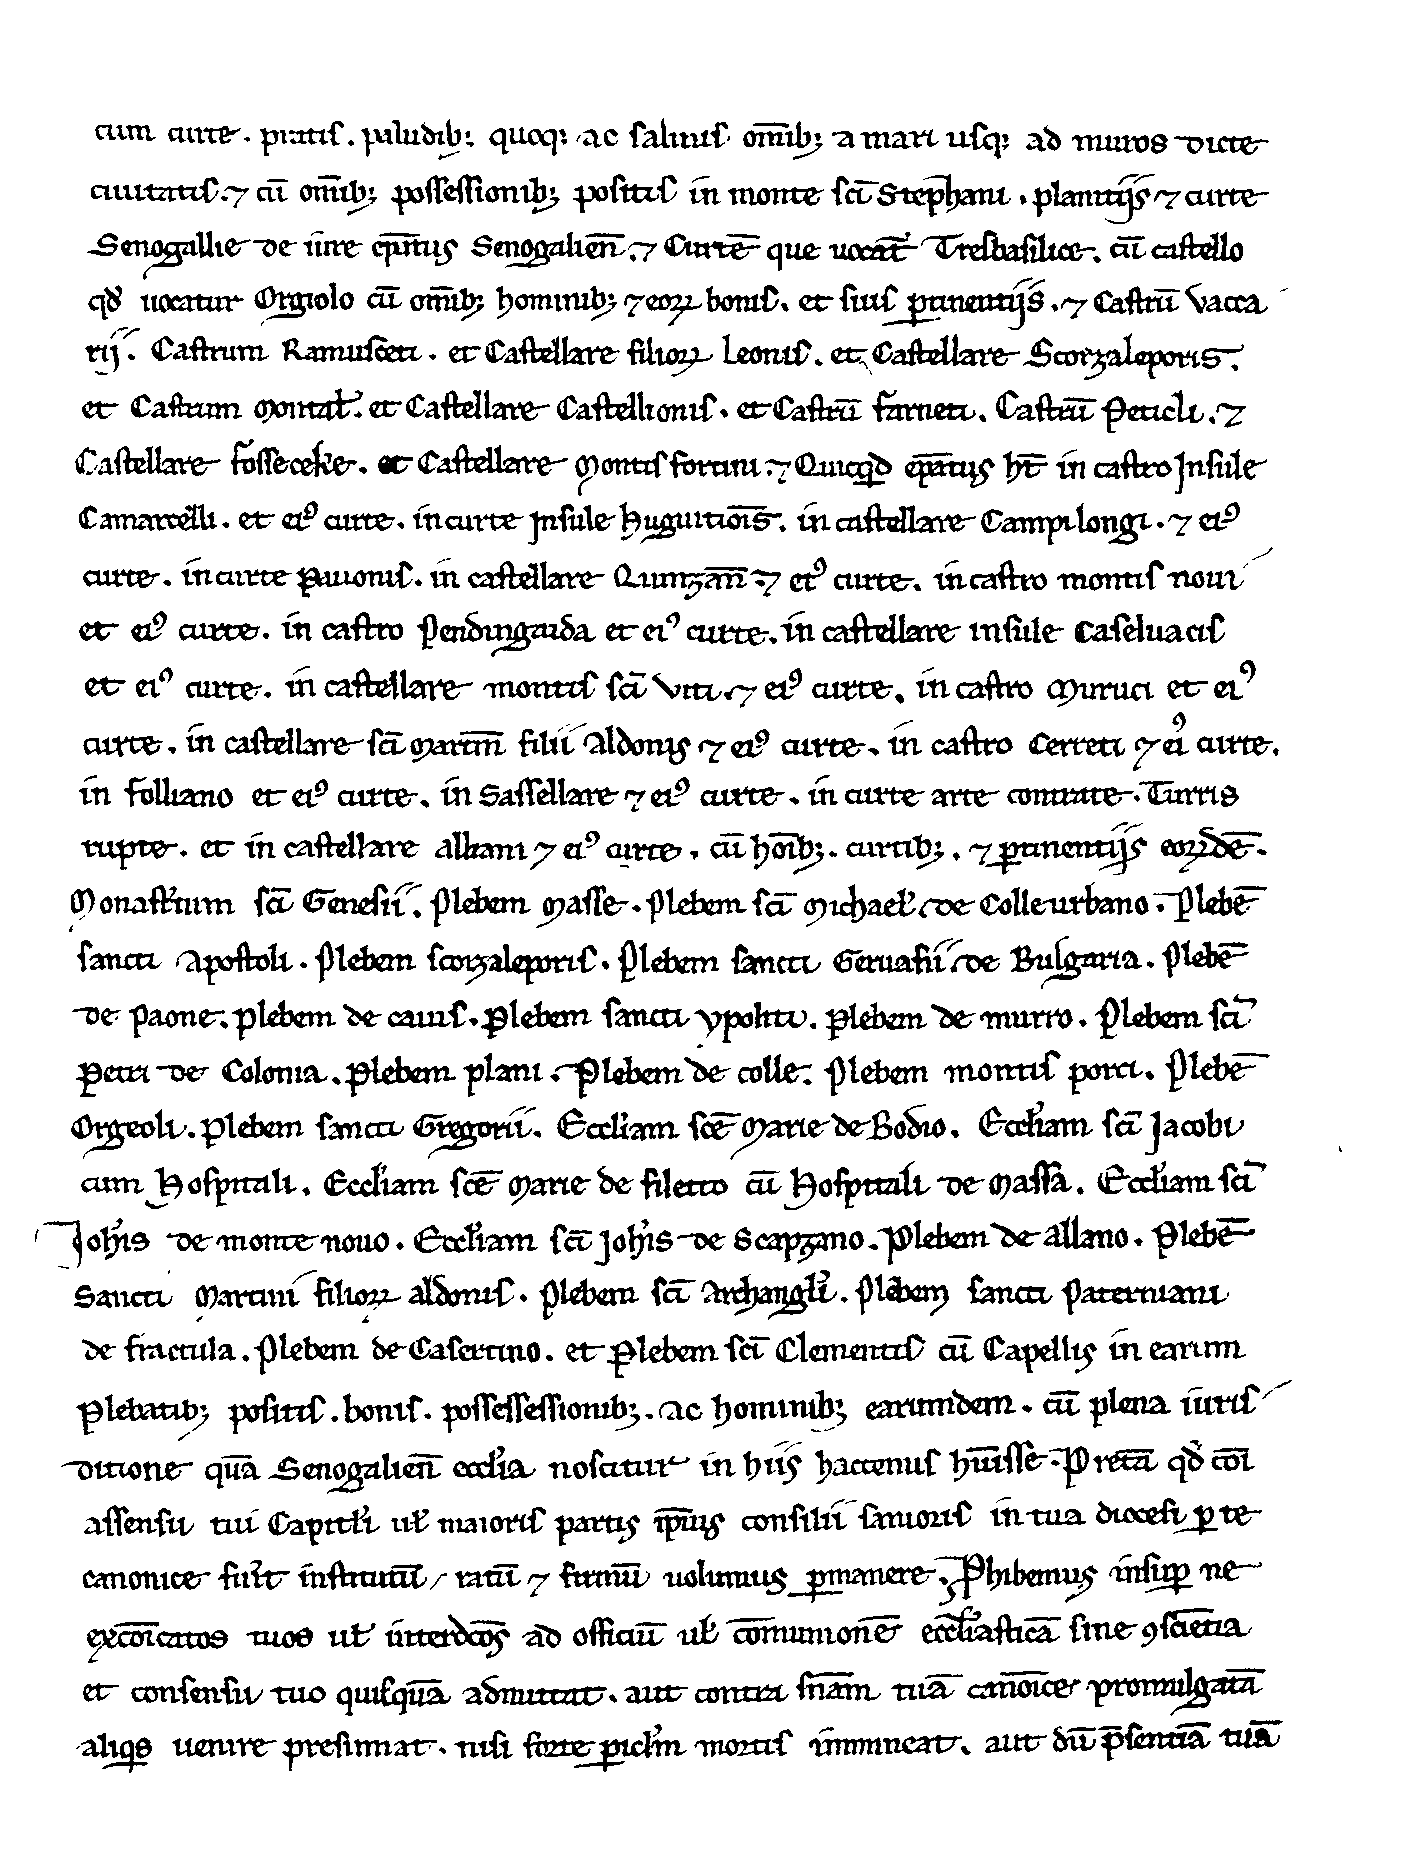 cum curte. pratis. paludib; quoq; ac salinis om̄ib; a mari usq; ad muros dicte
ciuitatis. ⁊ cū om̄ib; possessionib; positis in monte sc̄i Stephani. planitijs ⁊ curte
Senogallie de iure ep̄atus Senogalien̄. ⁊ Curtē que uocat᷑ Tresbasilice. cū castello
qd̄ uocatur Orgiolo cū om̄ib; hominib; ⁊ eoꝝ bonis. et suis ꝑtinentijs. ⁊ Castrū Vacca
rij. Castrum Ramusceti. et Castellare filioꝝ Leonis. et Castellare Scorzaleporis.
et Castrum Montal̄. et Castellare Castellionis. et Castrū farneti. Castrū Peticli. ⁊
Castellare fosseceke. et Castellare Montis fortini. ⁊ Quicq̄d ep̄atus ht̄ in castro Insule
Camarcelli. et eiꝰ curte. in curte Insule Huguitiōis. in castellare Campilongi. ⁊ eiꝰ
curte. in curte Pauionis. in castellare Quinzan̄ ⁊ eiꝰ curte. in castro montis noui
et eiꝰ curte. in castro Pendinguida et eiꝰ curte. in castellare insule Caseluacis
et eiꝰ curte. in castellare montis sc̄i Viti. ⁊ eiꝰ curte. in castro Muruci et eiꝰ
curte. in castellare sc̄i Martin̄ filii Aldonis ⁊ eiꝰ curte. in castro Cerreti ⁊ eiꝰ curte.
in folliano et eiꝰ curte. in Sassellare ⁊ eiꝰ curte. in curte arte contrate. Turris
rupte. et in castellare albani ⁊ eiꝰ curte. cū hoīb;. curtib;. ⁊ ꝑtinentijs eoꝝdē.
Monast̄ium sc̄i Genesii. Plebem Masse. Plebem sc̄i Michael̄ de Colleurbano. Plebē
sancti Apostoli. Plebem scorzaleporis. Plebem sancti Geruasii de Bulgaria. Plebē
de Paone. Plebem de cauis. Plebem sancti ypoliti. Plebem de murro. Plebem sc̄i
Petri de Colonia. Plebem plani. Plebem de colle. Plebem montis porci. Plebē
Orgeoli. Plebem sancti Gregorii. Eccl̄iam sc̄e Marie de Bodio. Eccl̄iam sc̄i Jacobi
cum Hospitali. Eccl̄iam sc̄e Marie de filetto cū Hospitali de Massa. Eccl̄iam sc̄i
Joh̄is de monte nouo. Eccl̄iam sc̄i Joh̄is de Scapzano. Plebem de Allano. Plebē
Sancti Martini filioꝝ aldonis. Plebem sc̄i Archangl̄i. Plebem sancti Paterniani
de fractula. Plebem de Casertino. et Plebem sc̄i Clementis cū Capellis in earum
Plebatib; positis. bonis. possessessionib;. ac hominib; earumdem. cū plena iuris
ditione quā Senogalien̄ eccl̄ia noscitur in hiis hactenus hūisse. Pretā qd̄ cōi
assensu tui Capitl̄i ul̄ maioris partis ip̄ius consilii sanioris in tua diocesi ꝑ te
canonice fu̅it institutū / ratū ⁊ firmū uolumus ꝑmanere. Phibemus insuꝑ ne
excōicatos tuos ul̄ int̅erdc̄os ad officiū ul̄ cōmunionē eccl̄iasticā sine ꝯscientia
et consensu tuo quisquā admittat. aut contra sn̄iam tuā canōice promulgatā
aliq̄s uenire presumat. nisi forte ꝑicl̄m mortis immineat. aut dū p̄sentiā tuā